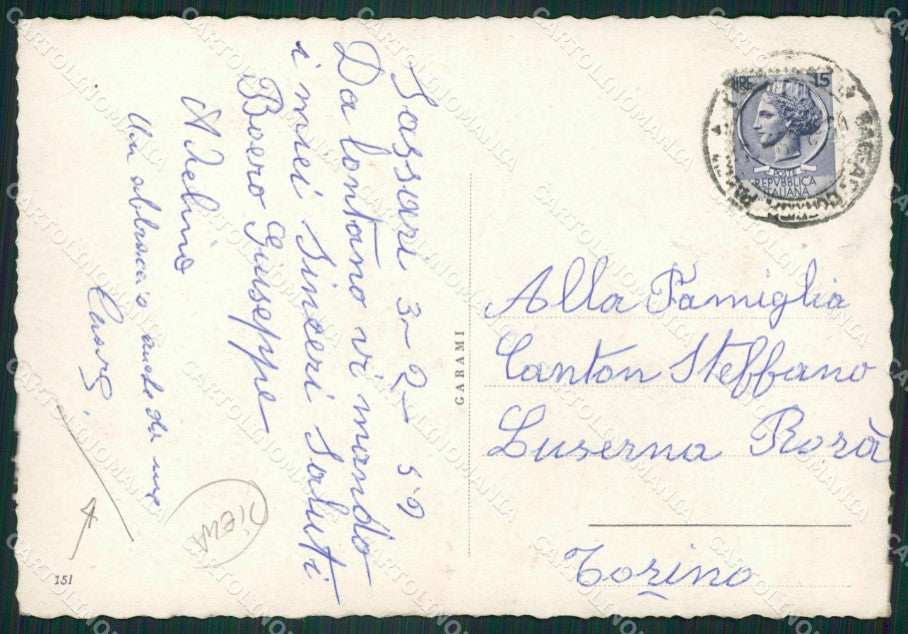 Sassari 3-2-59
Da lontano vi mando
i miei sinceri Saluti
Boero Giuseppe
Un abbraccio anche da me
GARAMI
LIRE 15
POSTE
REPVBBLICA
ITALIANA
Alla Famiglia
Canton Steffano
Luserna Rorà
Torino
151
CARTOLINOMANIA